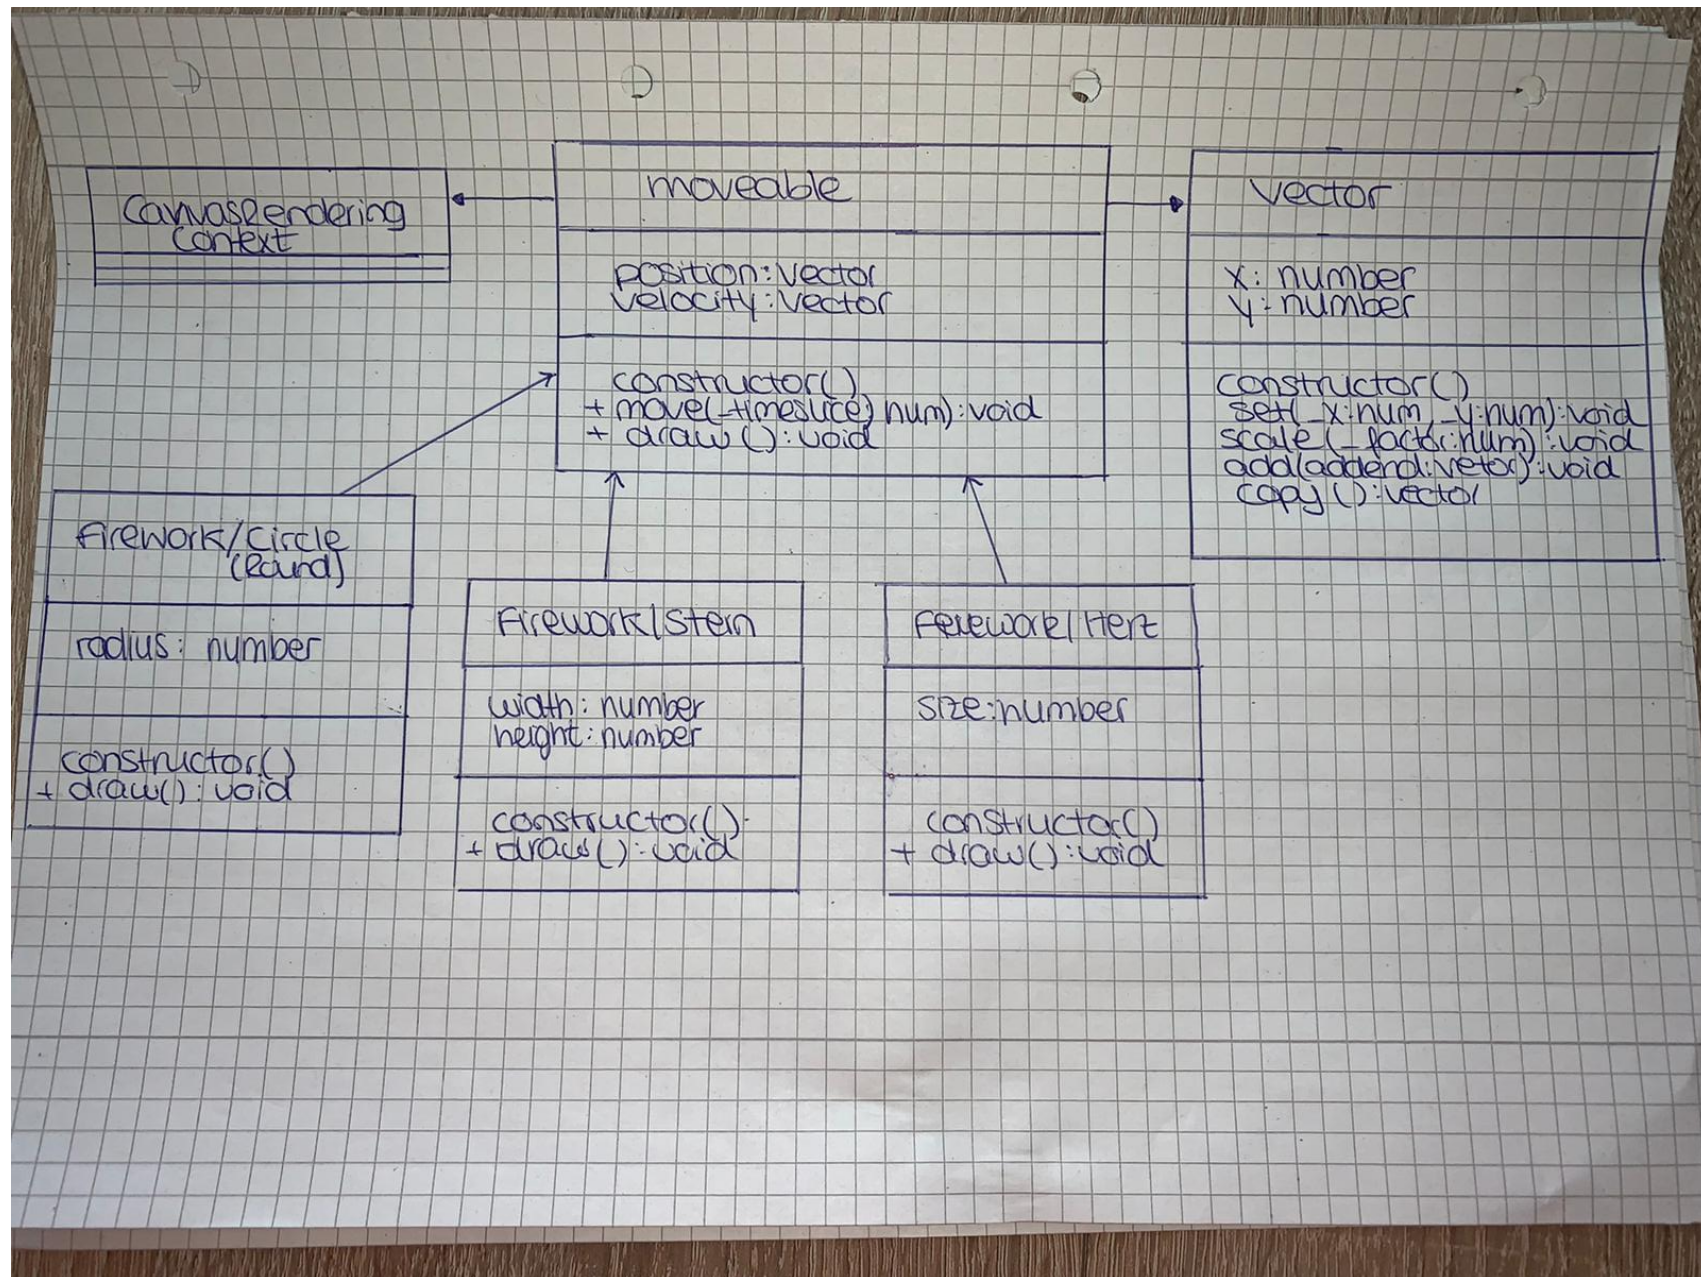 CanvasRendering
Context
moveable
position: vector
velocity: vector
constructor()
+ move(_timeslice) num): void
+ draw (): void
vector
x: number
y: number
constructor()
set(_x:num, _y:num): void
scale (_factor:num): void
add(addend:vetor): void
copy (): vector
Firework/Circle
(Round)
radius: number
constructor()
+ draw(): void
Firework/Stern
width: number
height: number
constructor()
+ draw(): void
Ferework/Herz
size: number
constructor()
+ draw(): void